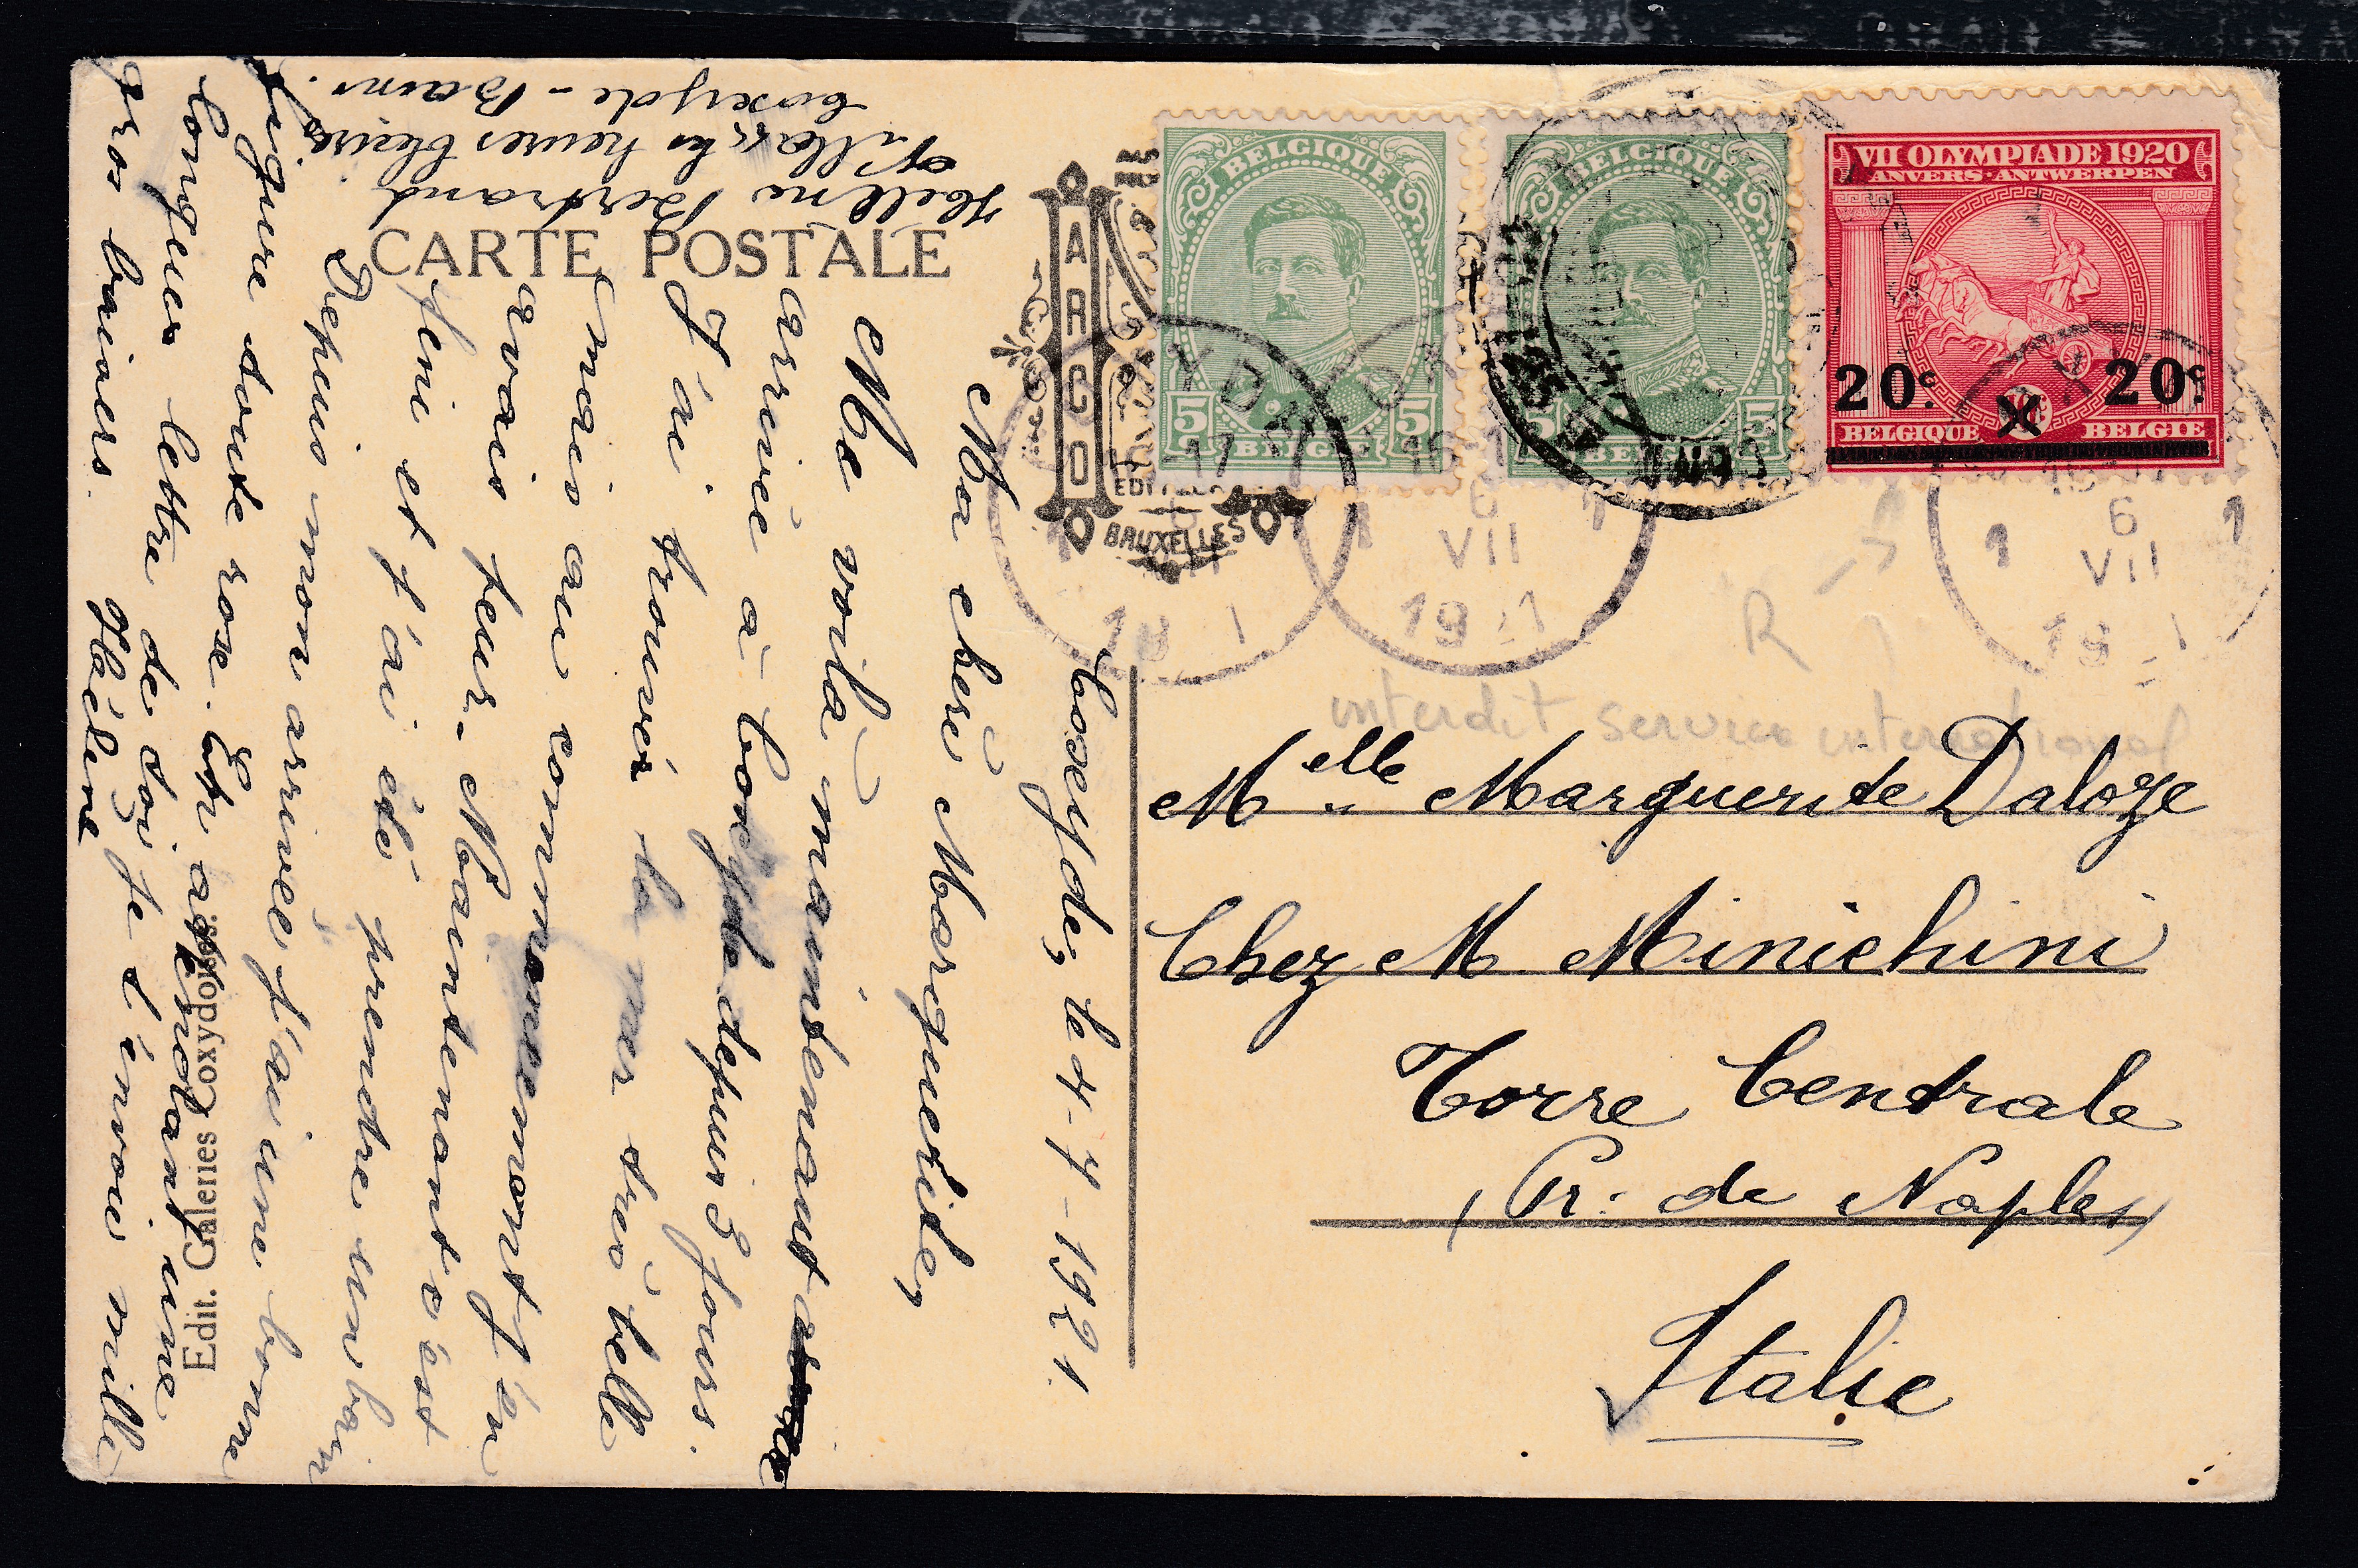 CARTE POSTALE
ARCO
EDITEUR
BRUXELLES
Edit. Galeries Coxydoises.
BELGIQUE
5 5
BELGIE
BELGIQUE
5 5
BELGIE
VII OLYMPIADE 1920
ANVERS · ANTWERPEN
20c. 20c.
BELGIQUE BELGIE
11
19 1
1 6 1
VII
19 1
1 6 1
VII
19
R
interdit service international
Melle Marguerite Daloze
Chez M. Minichini
Torre Centrale
(Pr. de Naples)
Italie
Coxeyde, le 4-7-1921
Ma chère Marguerite,
Me voilà maintenant
arrivée à Coxeyde depuis 3 jours.
J'ai trouvé la mer très belle
mais au commencement j'en
avais peur. Maintenant c'est
fini et j'ai été prendre un bain
Depuis mon arrivée j'ai une bonne
figure toute rose. En attendant une
longue lettre de toi je t'envoie mille
gros baisers. Hélène
Hélène Bertrand
Villa "les heures bleues"
Coxeyde-Bains.